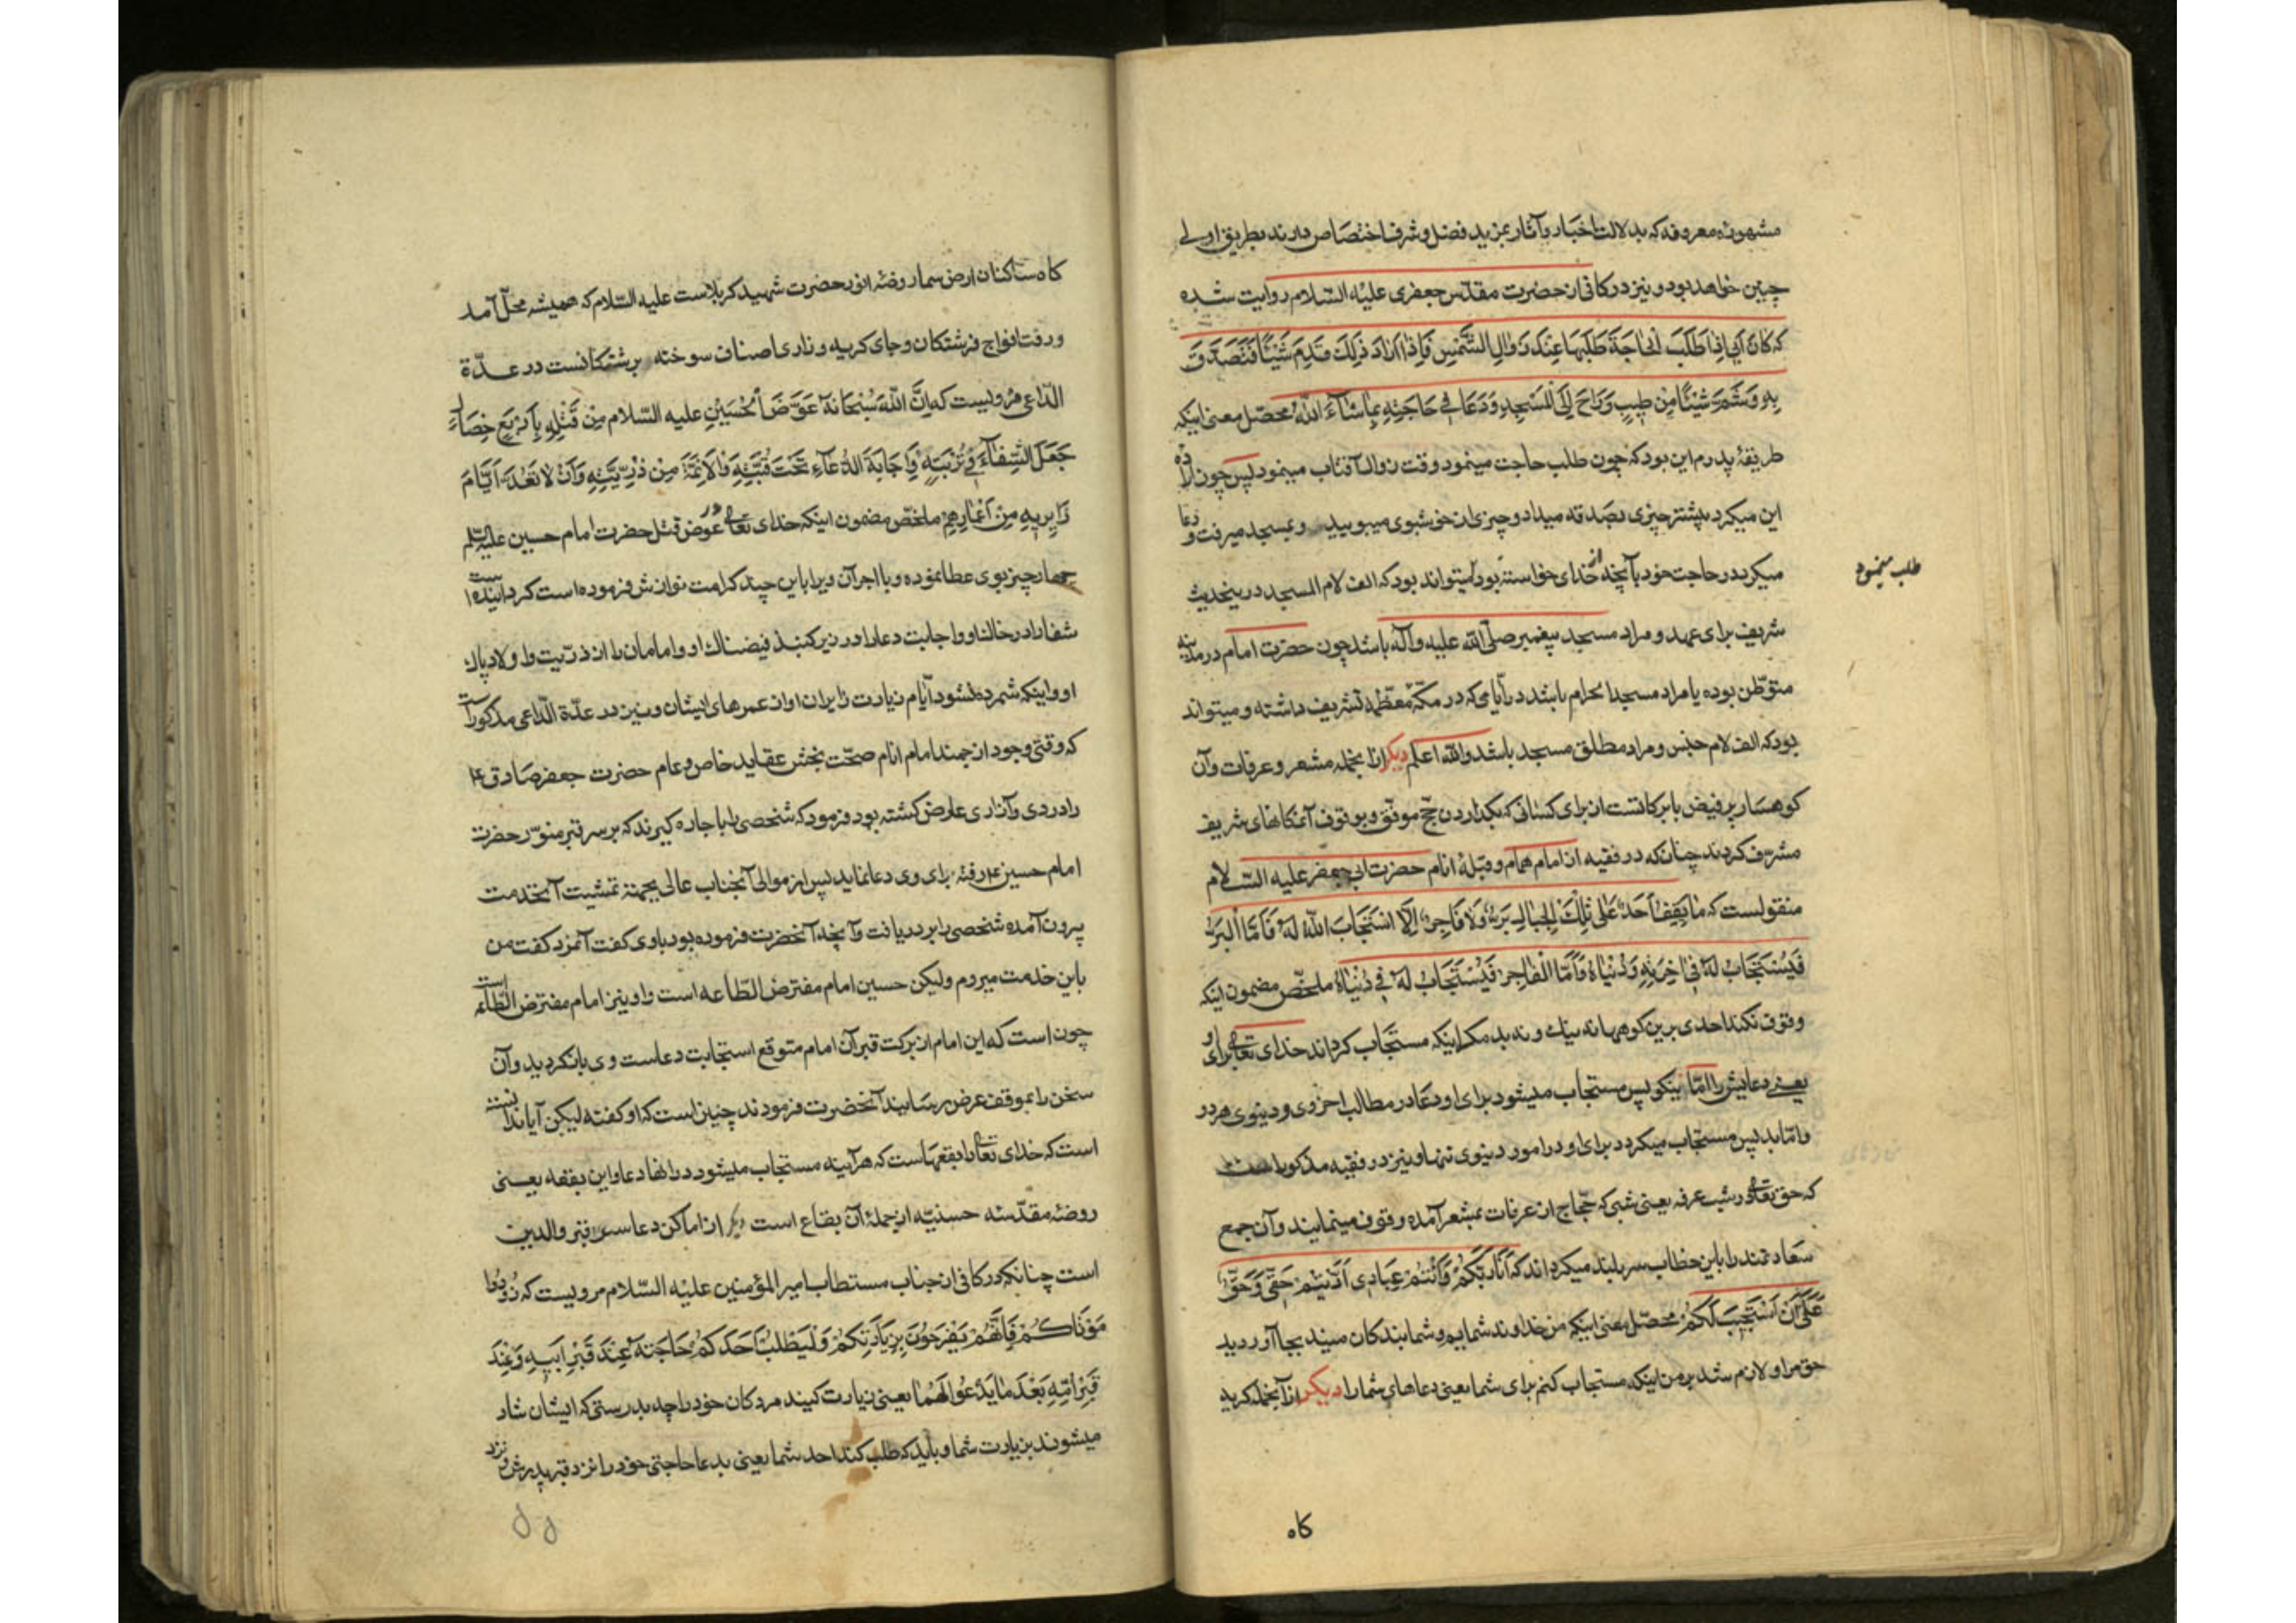 مشهوره معروفه که بدلالت اخبار و آثار بمزید فضل و شرف اختصاص دارند بطریق اولی
چنین خواهد بود و نیز در کافی از حضرت مقدّس جعفری علیه السلام روایت شده
که کَانَ اَبِی اِذَا طَلَبَ الحَاجَةَ طَلَبَهَا عِنْدَ زَوَالِ الشَّمْسِ فَاِذَا اَرَادَ ذٰلِكَ قَدَّمَ شَیْئًا فَتَصَدَّقَ
بِهِ وَشَمَّ شَیْئًا مِنْ طِیبٍ وَرَاحَ اِلَی الْمَسْجِدِ وَدَعَا فِی حَاجَتِهِ بِمَا شَآءَ اللّٰهُ محصّل معنی اینکه
طریقهٔ پدرم این بود که چون طلب حاجت مینمود وقت زوال آفتاب مینمود پس چون اراده
این میکرد پیشتر چیزی بصدقه میداد و چیزی از خوشبوی میبویید و بمسجد میرفت و دعا
میکرد در حاجت خود بآنچه از خدای خواسته بود میتواند بود که الف لام المسجد در ینحدیث
طلب مینمود
شریف برای عهد و مراد مسجد پیغمبر صلّی اللّه علیه وآله باشد چون حضرت امام در مدینه
متوطّن بوده یا مراد مسجد الحرام باشد در ایّامی که در مکّه معظّمه تشریف داشته و میتواند
بود که الف لام جنس و مراد مطلق مسجد باشد واللّه اعلم دیکر از انجمله مشعر و عرفات وآن
کوهسار پر فیض با برکاتست از برای کسانی که بکذاردن حج موفّق و بوقوف آنمکانهای شریف
مشرّف کردند چنانکه در فقیه از امام همام و قبلهٔ انام حضرت ابی جعفر علیه السّلام
منقولست که مَا یَقِفُ اَحَدٌ عَلٰی تِلْكَ الْجِبَالِ بَرٌّ وَلَا فَاجِرٌ اِلَّا اسْتَجَابَ اللّٰهُ لَهُ فَاَمَّا الْبَرُّ
فَیُسْتَجَابُ لَهُ فِی آخِرَتِهِ وَدُنْیَاهُ وَاَمَّا الْفَاجِرُ فَیُسْتَجَابُ لَهُ فِی دُنْیَاهُ ملخّص مضمون اینکه
وقوف نکند احدی برین کوهها نه نیك و نه بد مکر اینکه مستجاب کرداند خدای تعالی برای او
یعنی دعایش را امّا نیکو پس مستجاب میشود برای او دعا در مطالب اخروی و دنیوی هر دو
و امّا بد پس مستجاب میکردد برای او در امور دنیوی تنها و نیز در فقیه مذکور است
که حق تعالی در شب عرفه یعنی شبی که حجّاج از عرفات بمشعر آمده وقوف مینمایند وآن جمع
سعادتمند را باین خطاب سربلند میکرداند که اَنَا رَبُّكُمْ وَاَنْتُمْ عِبَادِی اَدَّیْتُمْ حَقِّی وَحَقٌّ
عَلَیَّ اَنْ اَسْتَجِیبَ لَکُمْ محصّل معنی اینکه من خداوند شمایم و شما بندکان منید بجا آوردید
حق مرا و لازم شد بر من اینکه مستجاب کنم برای شما یعنی دعاهای شما را دیکر از آنجمله کریه
کاه
کاه ساکنان ارض سما روضهٔ انور حضرت شهید کربلاست علیه السّلام که همیشه محلّ آمد
و رفت افواج فرشتکان و جای کریه و زاری اصناف سوخته برشتکانست در عدّة
الدّاعی مرویست که اِنَّ اللّٰهَ سُبْحَانَهُ عَوَّضَ الْحُسَیْنِ علیه السّلام مِنْ قَتْلِهِ بِاَرْبَعِ خِصَالٍ
جَعَلَ الشِّفَآءَ فِی تُرْبَتِهِ وَاِجَابَةَ الدُّعَآءِ تَحْتَ قُبَّتِهِ وَالْاَئِمَّةَ مِنْ ذُرِّیَّتِهِ وَاَنْ لَا تُعَدَّ اَیَّامَ
زَایِرِیهِ مِنْ اَعْمَارِهِمْ ملخّص مضمون اینکه خدای تعالی در عوض قتل حضرت امام حسین علیه السّلم
چهار چیز بوی عطا نموده و با اجر آن ویرا باین چند کرامت نوازش فرموده است کردانیده است
شفا را در خاك او و اجابت دعا را در زیر کنبذ فیضناك او و امامان را از ذرّیت و اولاد پاك
او و اینکه شمرده نشود ایّام زیارت زایران او از عمرهای ایشان و نیز در عدّة الدّاعی مذکور است
که وقتی وجود ارجمند امام انام صحّت بخش عقاید خاص و عام حضرت جعفر صادق ع
را دردی و آزاری عارض کشته بود فرمود که شخصی را باجاره کیرند که بر سر قبر منوّر حضرت
امام حسین ع رفته برای وی دعا نماید پس از موالی آنجناب عالی بجهة تمشیت آنخدمت
بیرون آمده شخصی را بر در یافت وآنچه آنحضرت فرموده بود باوی کفت آنمرد کفت من
باین خدمت میروم ولیکن حسین امام مفترض الطّاعه است و او نیز امام مفترض الطّاعه است
چون است که این امام از برکت قبر آن امام متوقع استجابت دعاست وی باز کردید وآن
سخن را بموقف عرض رسانید آنحضرت فرمودند چنین است که او کفته لیکن آیا ندانسته
است که خدای تعالی را بقعهاست که هرآینه مستجاب میشود در آنها دعا و این بقعه یعنی
روضهٔ مقدّسه حسنیّه از جملهٔ آن بقاع است دیکر از اماکن دعا سر قبر والدین
است چنانکه در کافی از جناب مستطاب امیر المؤمنین علیه السّلام مرویست که زُورُوا
مَوْتَاکُمْ فَاِنَّهُمْ یَفْرَحُونَ بِزِیَارَتِکُمْ وَلْیَطْلُبْ اَحَدُکُمْ حَاجَتَهُ عِنْدَ قَبْرِ اَبِیهِ وَعِنْدَ
قَبْرِ اُمِّهِ بَعْدَ مَا یَدْعُوا لَهُمَا یعنی زیارت کنید مردکان خود را چه بدرستی که ایشان شاد
میشوند بزیارت شما و باید که طلب کند احد شما یعنی بدعا حاجتی خود را نزد قبر پدرش و نزد